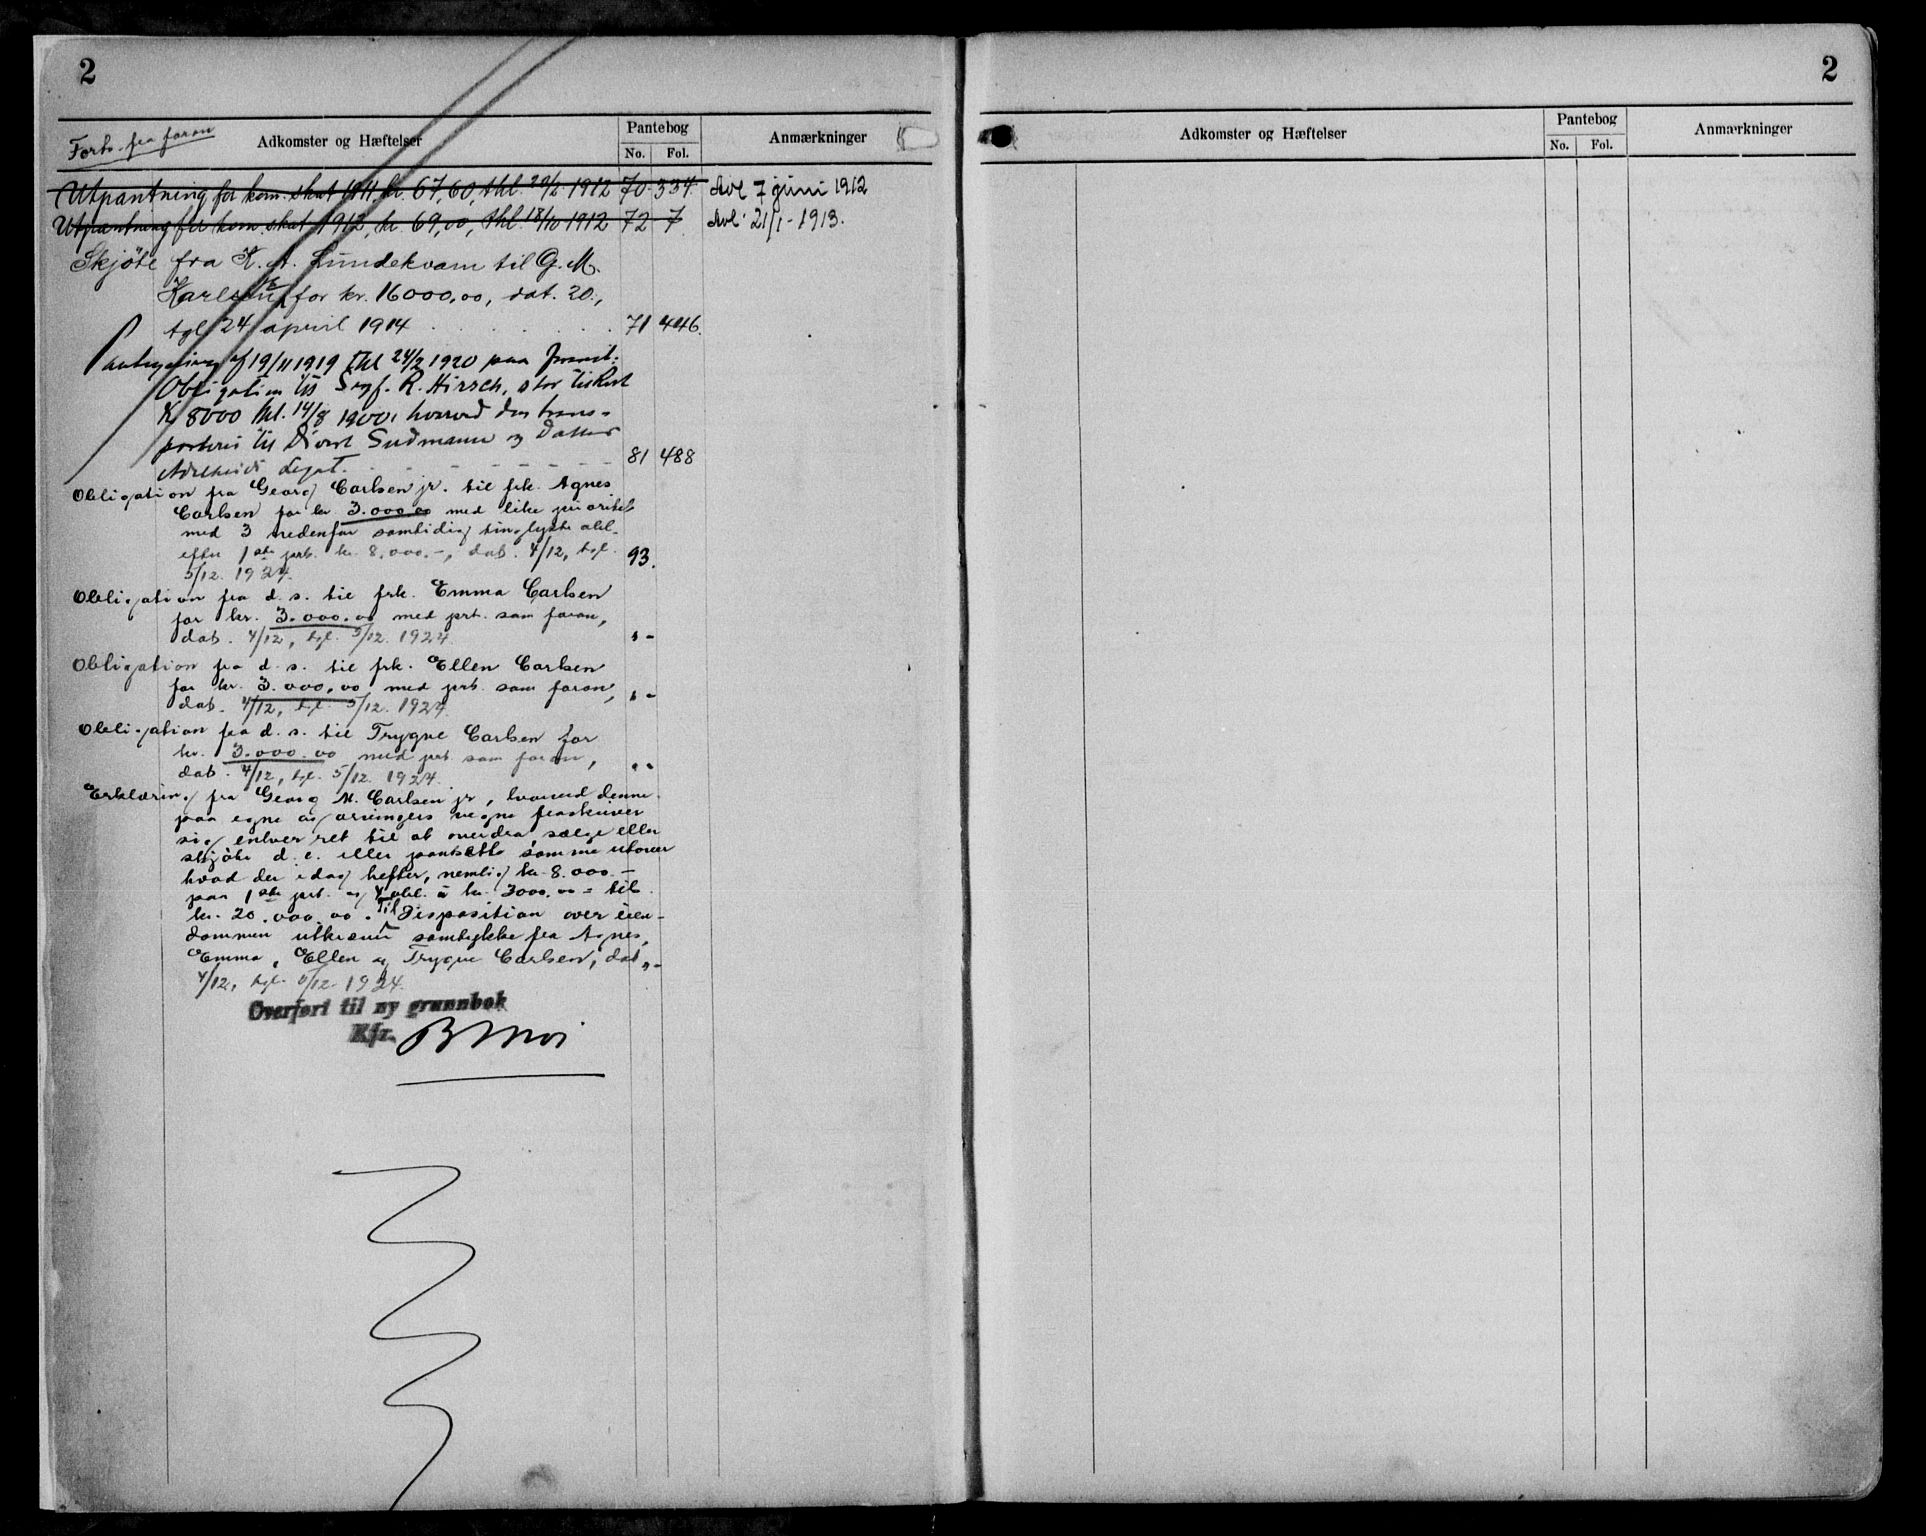 2
Forts. fra foran
Adkomster og Hæftelser
Pantebog
No. Fol.
Anmærkninger
Utpantning for kom. skat 1911, kr. 67,60, thl. 1912 70 334 Avl 7 juni 1912
Utpantning for kom. skat 1912, kr. 69,00, thl. 18/10 1912 72 7 Avl 21/1 - 1913.
Skjöte fra K. A. Lundekvam til G. M.
for kr. 16000,00, dat. 20.,
tgl 24 april 1914 71 446.
19/11 1919 thl 24/2 1920 paa
Obligation til Sigf. R. Hirsch, stor
Kr 8000 thl. 14/8 1900, hvorved den trans-
porteres til Sivert Sudmann og Datter
Adelheids Legat. 81 488
Obligation fra Georg Carlsen jr. til frk. Agnes
Carlsen for kr 3.000.00 med like prioritet
med 3 nedenfor samtidig tinglyste obl.
efter 1ste prt. kr. 8.000.-, dat. 4/12, tgl. 93.
5/12. 1924.
Obligation fra d. s. til frk. Emma Carlsen
for kr. 3.000.00 med prt. som foran,
dat. 4/12, tgl. 5/12. 1924. " -
Obligation fra d. s. til frk. Ellen Carlsen
for kr. 3.000.00 med prt. som foran, " -
dat. 4/12, tgl. 5/12. 1924.
Obligation fra d. s. til Trygve Carlsen for
kr. 3.000.00 med prt som foran,
dat. 4/12, tgl. 5/12. 1924. " "
Erklæring fra Georg M. Carlsen jr, hvorved denne
paa egne og arvingers vegne fraskriver
sig enhver ret til at overdra, sælge eller
skjøte d. e. eller pantsætte samme utover
hvad der idag hefter, nemlig kr. 8.000.-
paa 1ste prt. og 4 obl. à kr. 3000.00 = til
kr. 20.000.00. Til Disposition over eien-
dommen utkræves samtykke fra Agnes,
Emma, Ellen og Trygve Carlsen, dat. " -
4/12, tgl. 5/12. 1924.
Overført til ny grunnbok
Kfr.
2
Adkomster og Hæftelser
Pantebog
No. Fol.
Anmærkninger